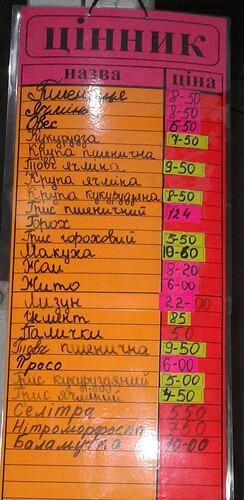 ЦІННИК
назва ціна
Пшениця 8-50
Ячмінь 8-50
Овес 6-50
Кукурудза 7-50
Крупа пшенична
Товч ячміна 9-50
Крупа ячміна
Крупа кукурудзяна 8-50
Грис пшеничний 124
Горох
Грис гороховий 5-50
Макуха 10-60
Жом 8-20
Жито 6-00
Лизун 22-00
Цемент 85
Палички 50
Товч пшенична 9-50
Просо 6-00
Грис кукурудзяний 5-00
Грис ячміний 4-50
Селітра 550
Нітроморфоска 750
Баламутка 10-00